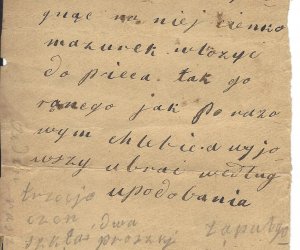 gnąc na niej cienko
mazurek włozyć
do pieca tak go
rącego jak po razo
wym chlebie a wyjo
wszy ubrać według
upodobania
trzecio
dwa